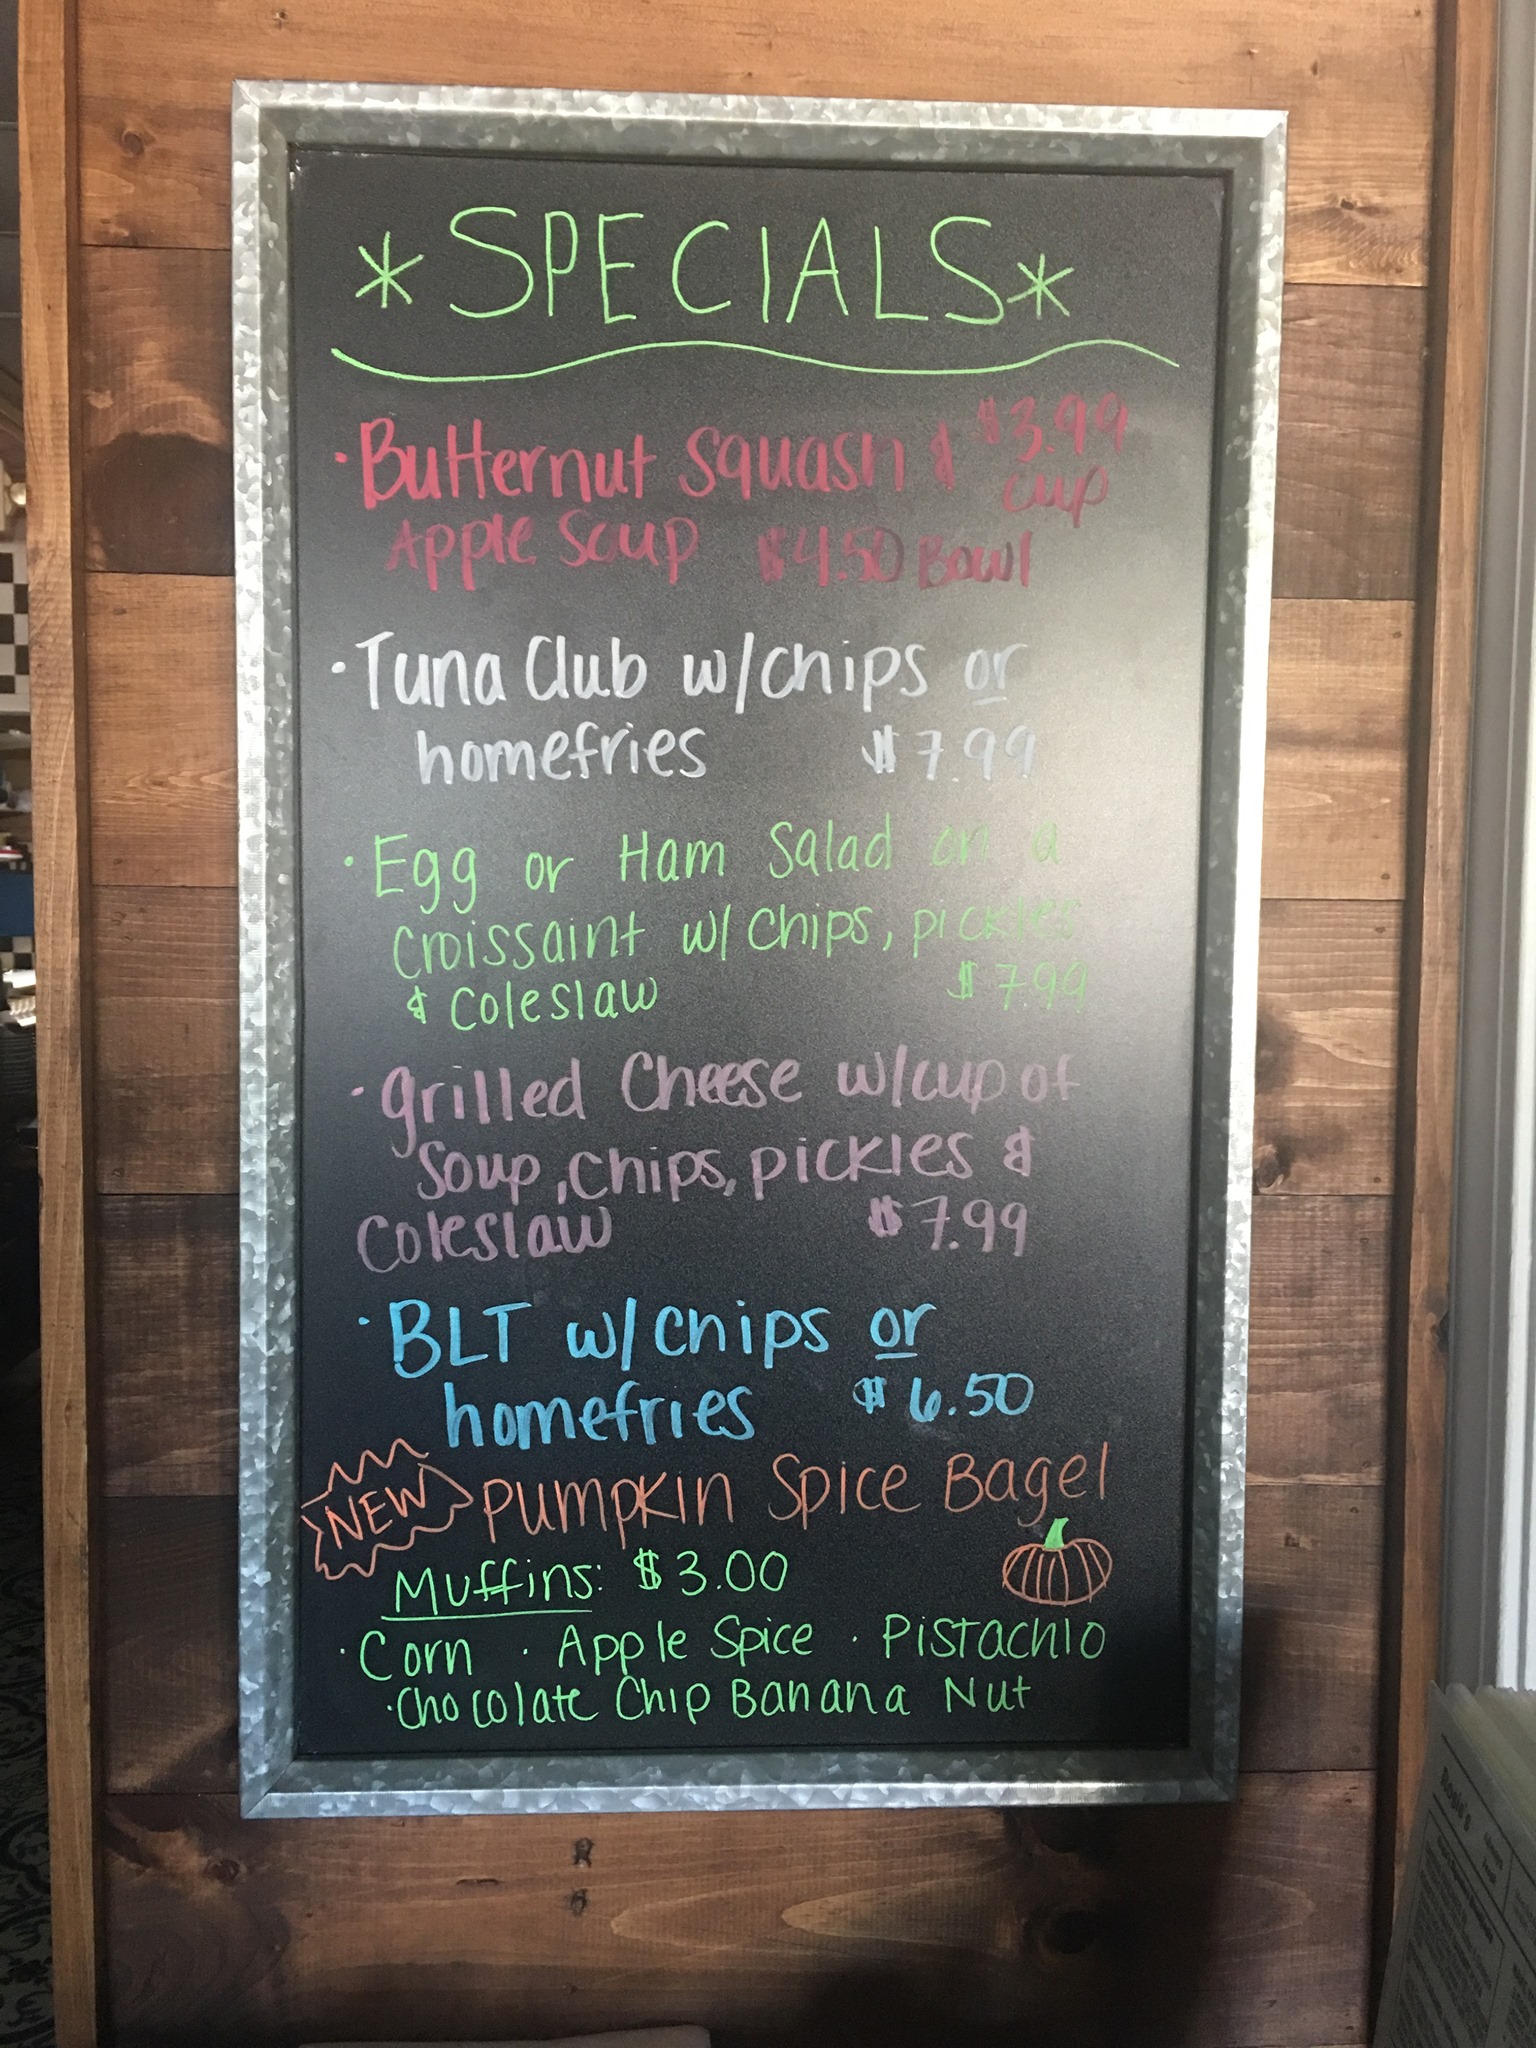 *SPECIALS*
·Butternut Squash & $3.99
cup
Apple Soup $4.50 Bowl
·Tuna Club w/chips or
homefries $7.99
·Egg or Ham Salad on a
Croissaint w/ chips, pickles
& Coleslaw $7.99
·grilled Cheese w/cup of
Soup, chips, pickles &
Coleslaw $7.99
·BLT w/chips or
homefries $6.50
NEW PUMPKIN Spice Bagel
Muffins: $3.00
·Corn · Apple Spice · Pistachio
·Chocolate Chip Banana Nut
Rosie's